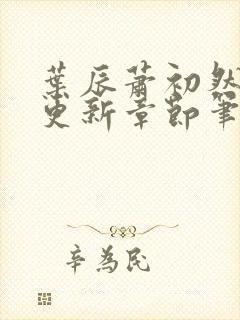 葉辰蕭初然
更新章節筆
辛為民